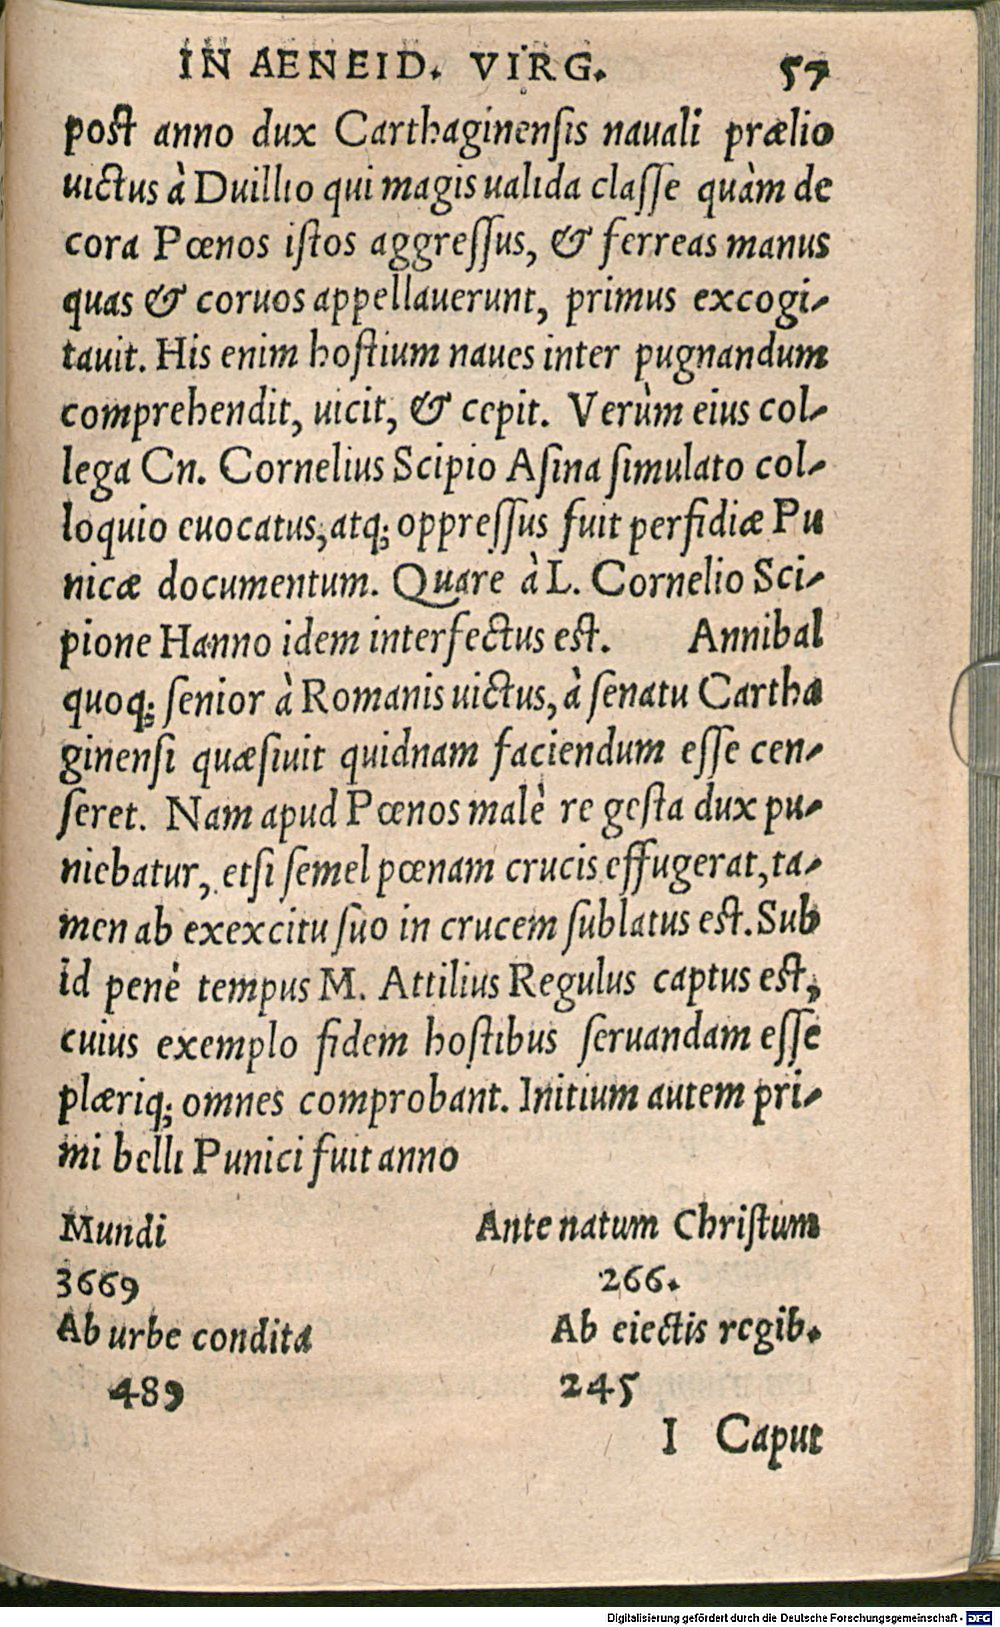 IN AENEID. VIRG. 57
post anno dux Carthaginenſis nauali prælio
uictus à Duillio qui magis ualida claſſe quàm de
cora Pœnos iſtos aggreſſus, & ferreas manus
quas & coruos appellauerunt, primus excogi-
tauit. His enim hoſtium naues inter pugnandum
comprehendit, uicit, & cepit. Verùm eius col-
lega Cn. Cornelius Scipio Aſina ſimulato col-
loquio euocatus, atq; oppreſſus fuit perfidiæ Pu
nicæ documentum. Quare à L. Cornelio Sci-
pione Hanno idem interfectus eſt. Annibal
quoq; ſenior à Romanis uictus, à ſenatu Cartha
ginenſi quæſiuit quidnam faciendum eſſe cen-
ſeret. Nam apud Pœnos malè re geſta dux pu-
niebatur, etſi ſemel pœnam crucis effugerat, ta-
men ab exexcitu ſuo in crucem ſublatus eſt. Sub
id penè tempus M. Attilius Regulus captus eſt,
cuius exemplo fidem hoſtibus ſeruandam eſſe
plæriq; omnes comprobant. Initium autem pri-
mi belli Punici fuit anno
Mundi Ante natum Chriſtum
3669 266.
Ab urbe condita Ab eiectis regib.
489 245
I Caput
Digitalisierung gefördert durch die Deutsche Forschungsgemeinschaft - DFG